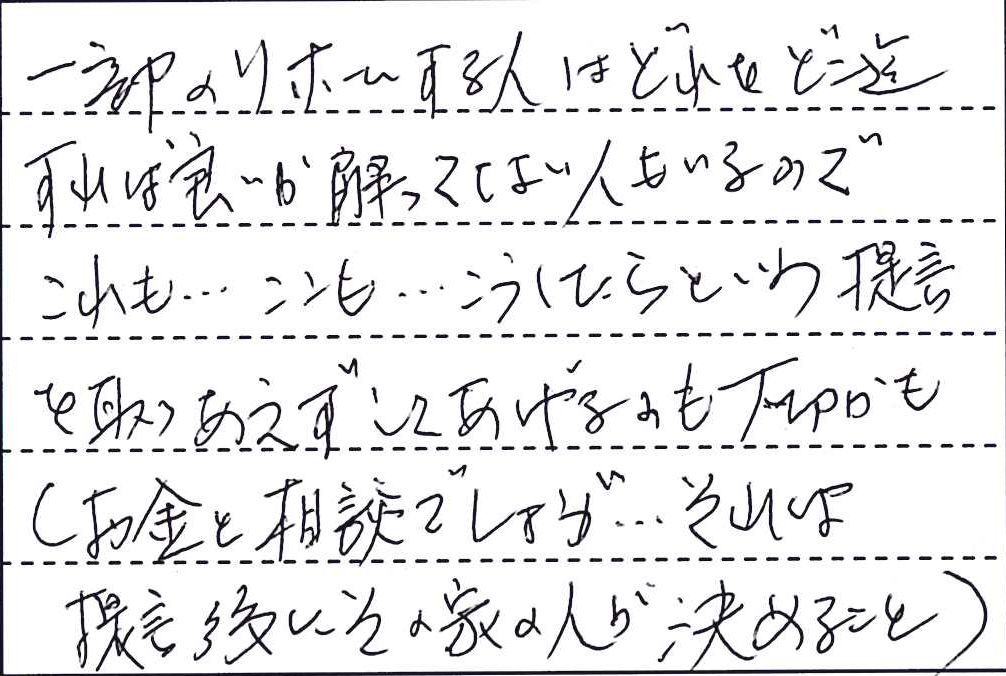 一部のリホームする人はどれをどこ迄
すれば良いか解ってない人もいるので
これも…ここも…こうしたらという提言
を取りあえずしてあげるのも下心かも
(お金と相談でしょうが…それは
提言後にその家の人が決めること)